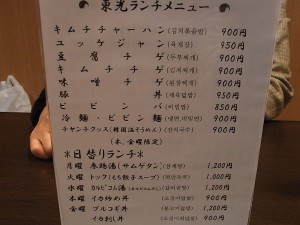 東光ランチメニュー
キムチチャーハン(김치볶음밥) 900円
ユッケジャン(육개장) 950円
豆腐チゲ(두부찌개) 900円
キムチチゲ(김치찌개) 900円
味噌チゲ(된장찌개) 900円
豚丼(제육덮밥) 950円
ビビンバ(비빔밥) 850円
冷麺・ビビン麺(냉면,비빔면) 900円
チャンチクッス(韓国温そうめん)(잔치국수) 900円
(木、金曜限定)
※日替りランチ※
月曜 参鶏湯(サムゲタン)(삼계탕) 1,200円
火曜 トック(もち餃子スープ)(떡만두국) 1,000円
水曜 カルビコム湯 1,200円
木曜 イカ炒め丼 900円
金曜 プルコギ丼 1,200円
イカ刺し丼 900円